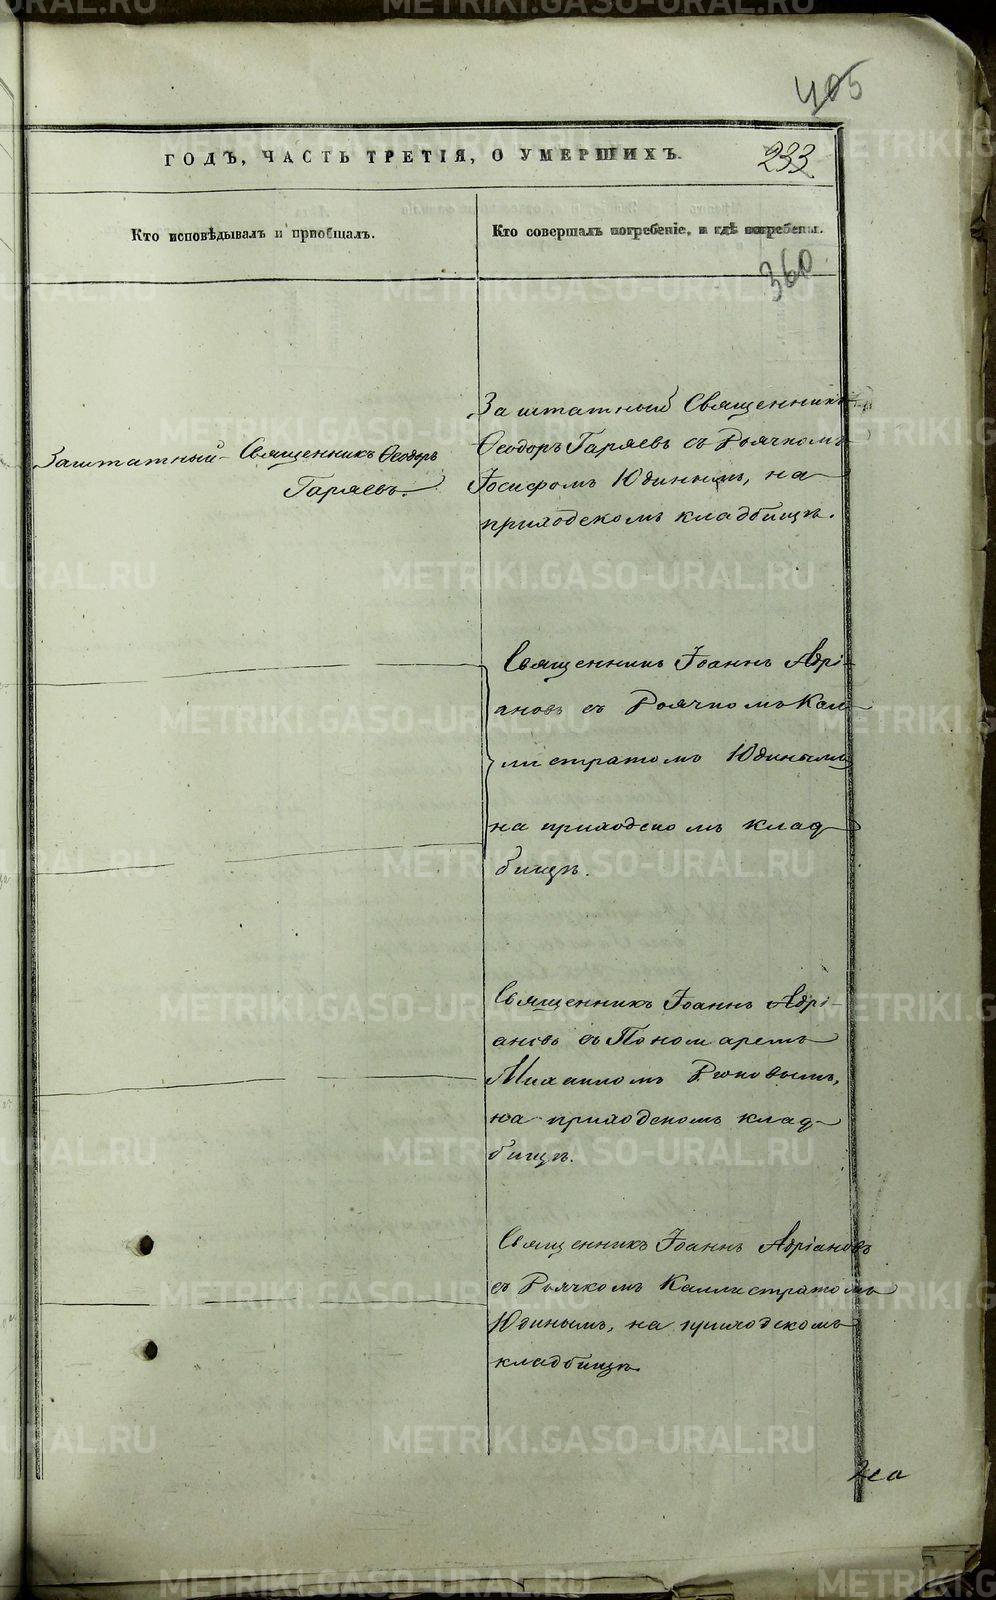 405
ГОДЪ, ЧАСТЬ ТРЕТІЯ, О УМЕРШИХЪ.
233
Кто исповѣдывалъ и пріобщалъ.
Кто совершалъ погребеніе, и гдѣ погребены.
360
Заштатный Священникъ Ѳеодоръ
Гаряевъ.
Заштатный Священникъ
Ѳеодоръ Гаряевъ съ Дьячкомъ
Іосифомъ Юдинымъ, на
приходскомъ кладбищѣ.
Священникъ Іоаннъ Адрі-
ановъ съ Дьячкомъ Кал-
листратомъ Юдинымъ
на приходскомъ клад-
бищѣ.
Священникъ Іоаннъ Адрі-
ановъ съ Пономаремъ
Михаиломъ
на приходскомъ клад-
бищѣ.
Священникъ Іоаннъ Адріановъ
съ Дьячкомъ Каллистратомъ
Юдинымъ, на приходскомъ
кладбищѣ.
METRIKI.GASO-URAL.RU